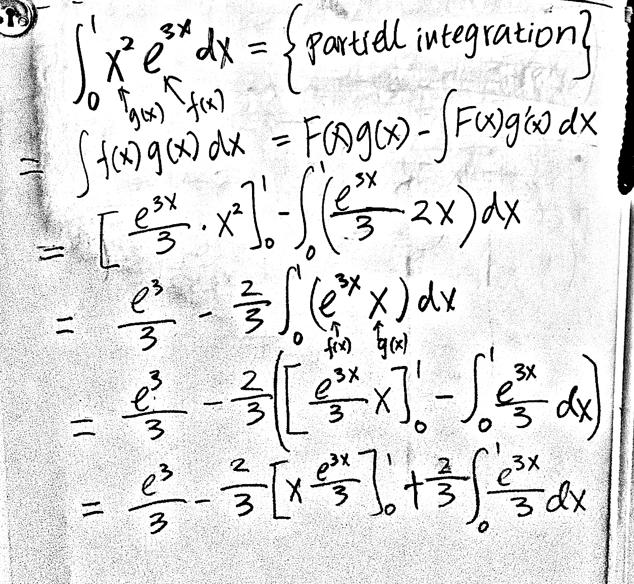 ∫₀¹ x² e^{3x} dx = {Partiell integration}
g(x) f(x)
= ∫ f(x) g(x) dx = F(x) g(x) - ∫ F(x) g'(x) dx
= [e^{3x}/3 · x²]₀¹ - ∫₀¹ (e^{3x}/3 · 2x) dx
= e³/3 - 2/3 ∫₀¹ (e^{3x} x) dx
f(x) g(x)
= e³/3 - 2/3 ([e^{3x}/3 x]₀¹ - ∫₀¹ e^{3x}/3 dx)
= e³/3 - 2/3 [x e^{3x}/3]₀¹ + 2/3 ∫₀¹ e^{3x}/3 dx